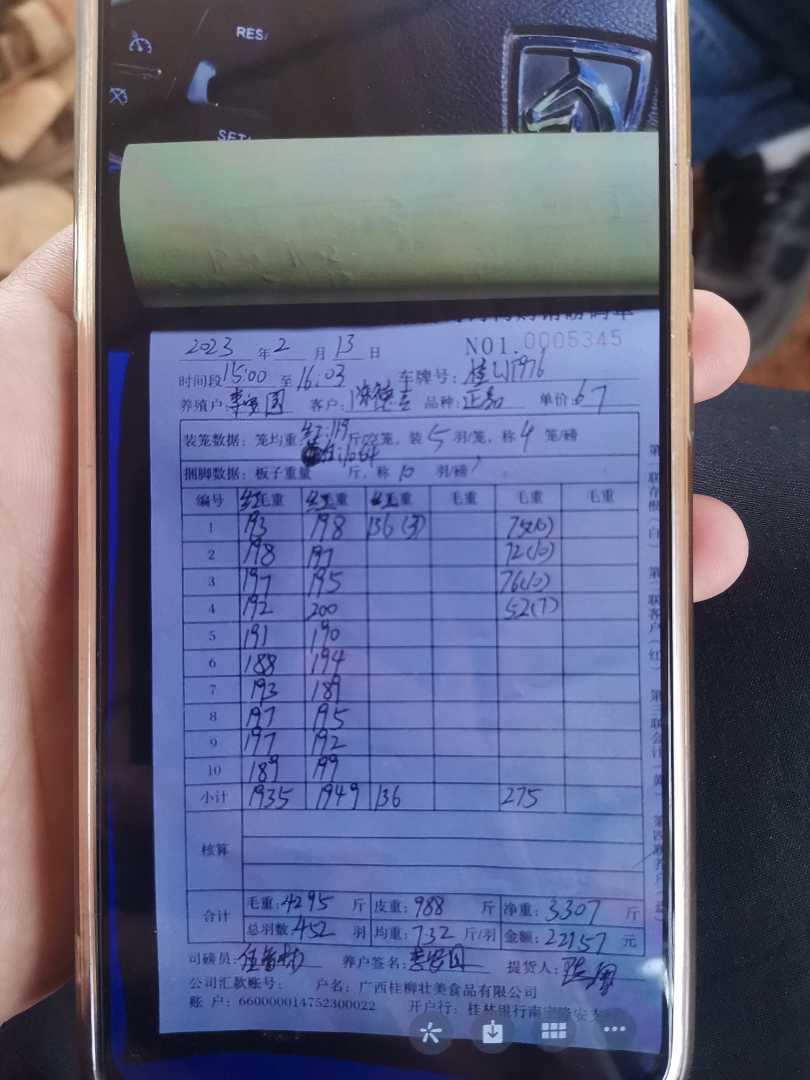 RES
SET
NO1.0005345
2023 年 2 月 13 日
时间段 15:00 至 16:03 车牌号:
养殖户: 客户: 品种: 正 单价: 67
装笼数据: 笼均重: 红:119 斤/空笼, 装 5 羽/笼, 称 4 笼/磅
捆脚数据: 板子重量 斤, 称 10 羽/磅
编号 红毛重 红毛重 红毛重 毛重 毛重 毛重
1 193 198 136(3) 75(10)
2 198 197 72(10)
3 197 195 76(10)
4 192 200 52(7)
5 191 190
6 188 194
7 193 189
8 197 195
9 197 192
10 189 199
小计 1935 1949 136 275
核算
合计 毛重: 4295 斤 皮重: 988 斤 净重: 3307 斤
总羽数: 452 羽 均重: 732 斤/羽 金额: 22157 元
司磅员: 养户签名: 提货人:
公司汇款账号: 户名: 广西桂柳壮美食品有限公司
账 户: 660000014752300022 开户行: 桂林银行南宁隆安支
第一联存根(白) 第二联客户(红) 第三联会计